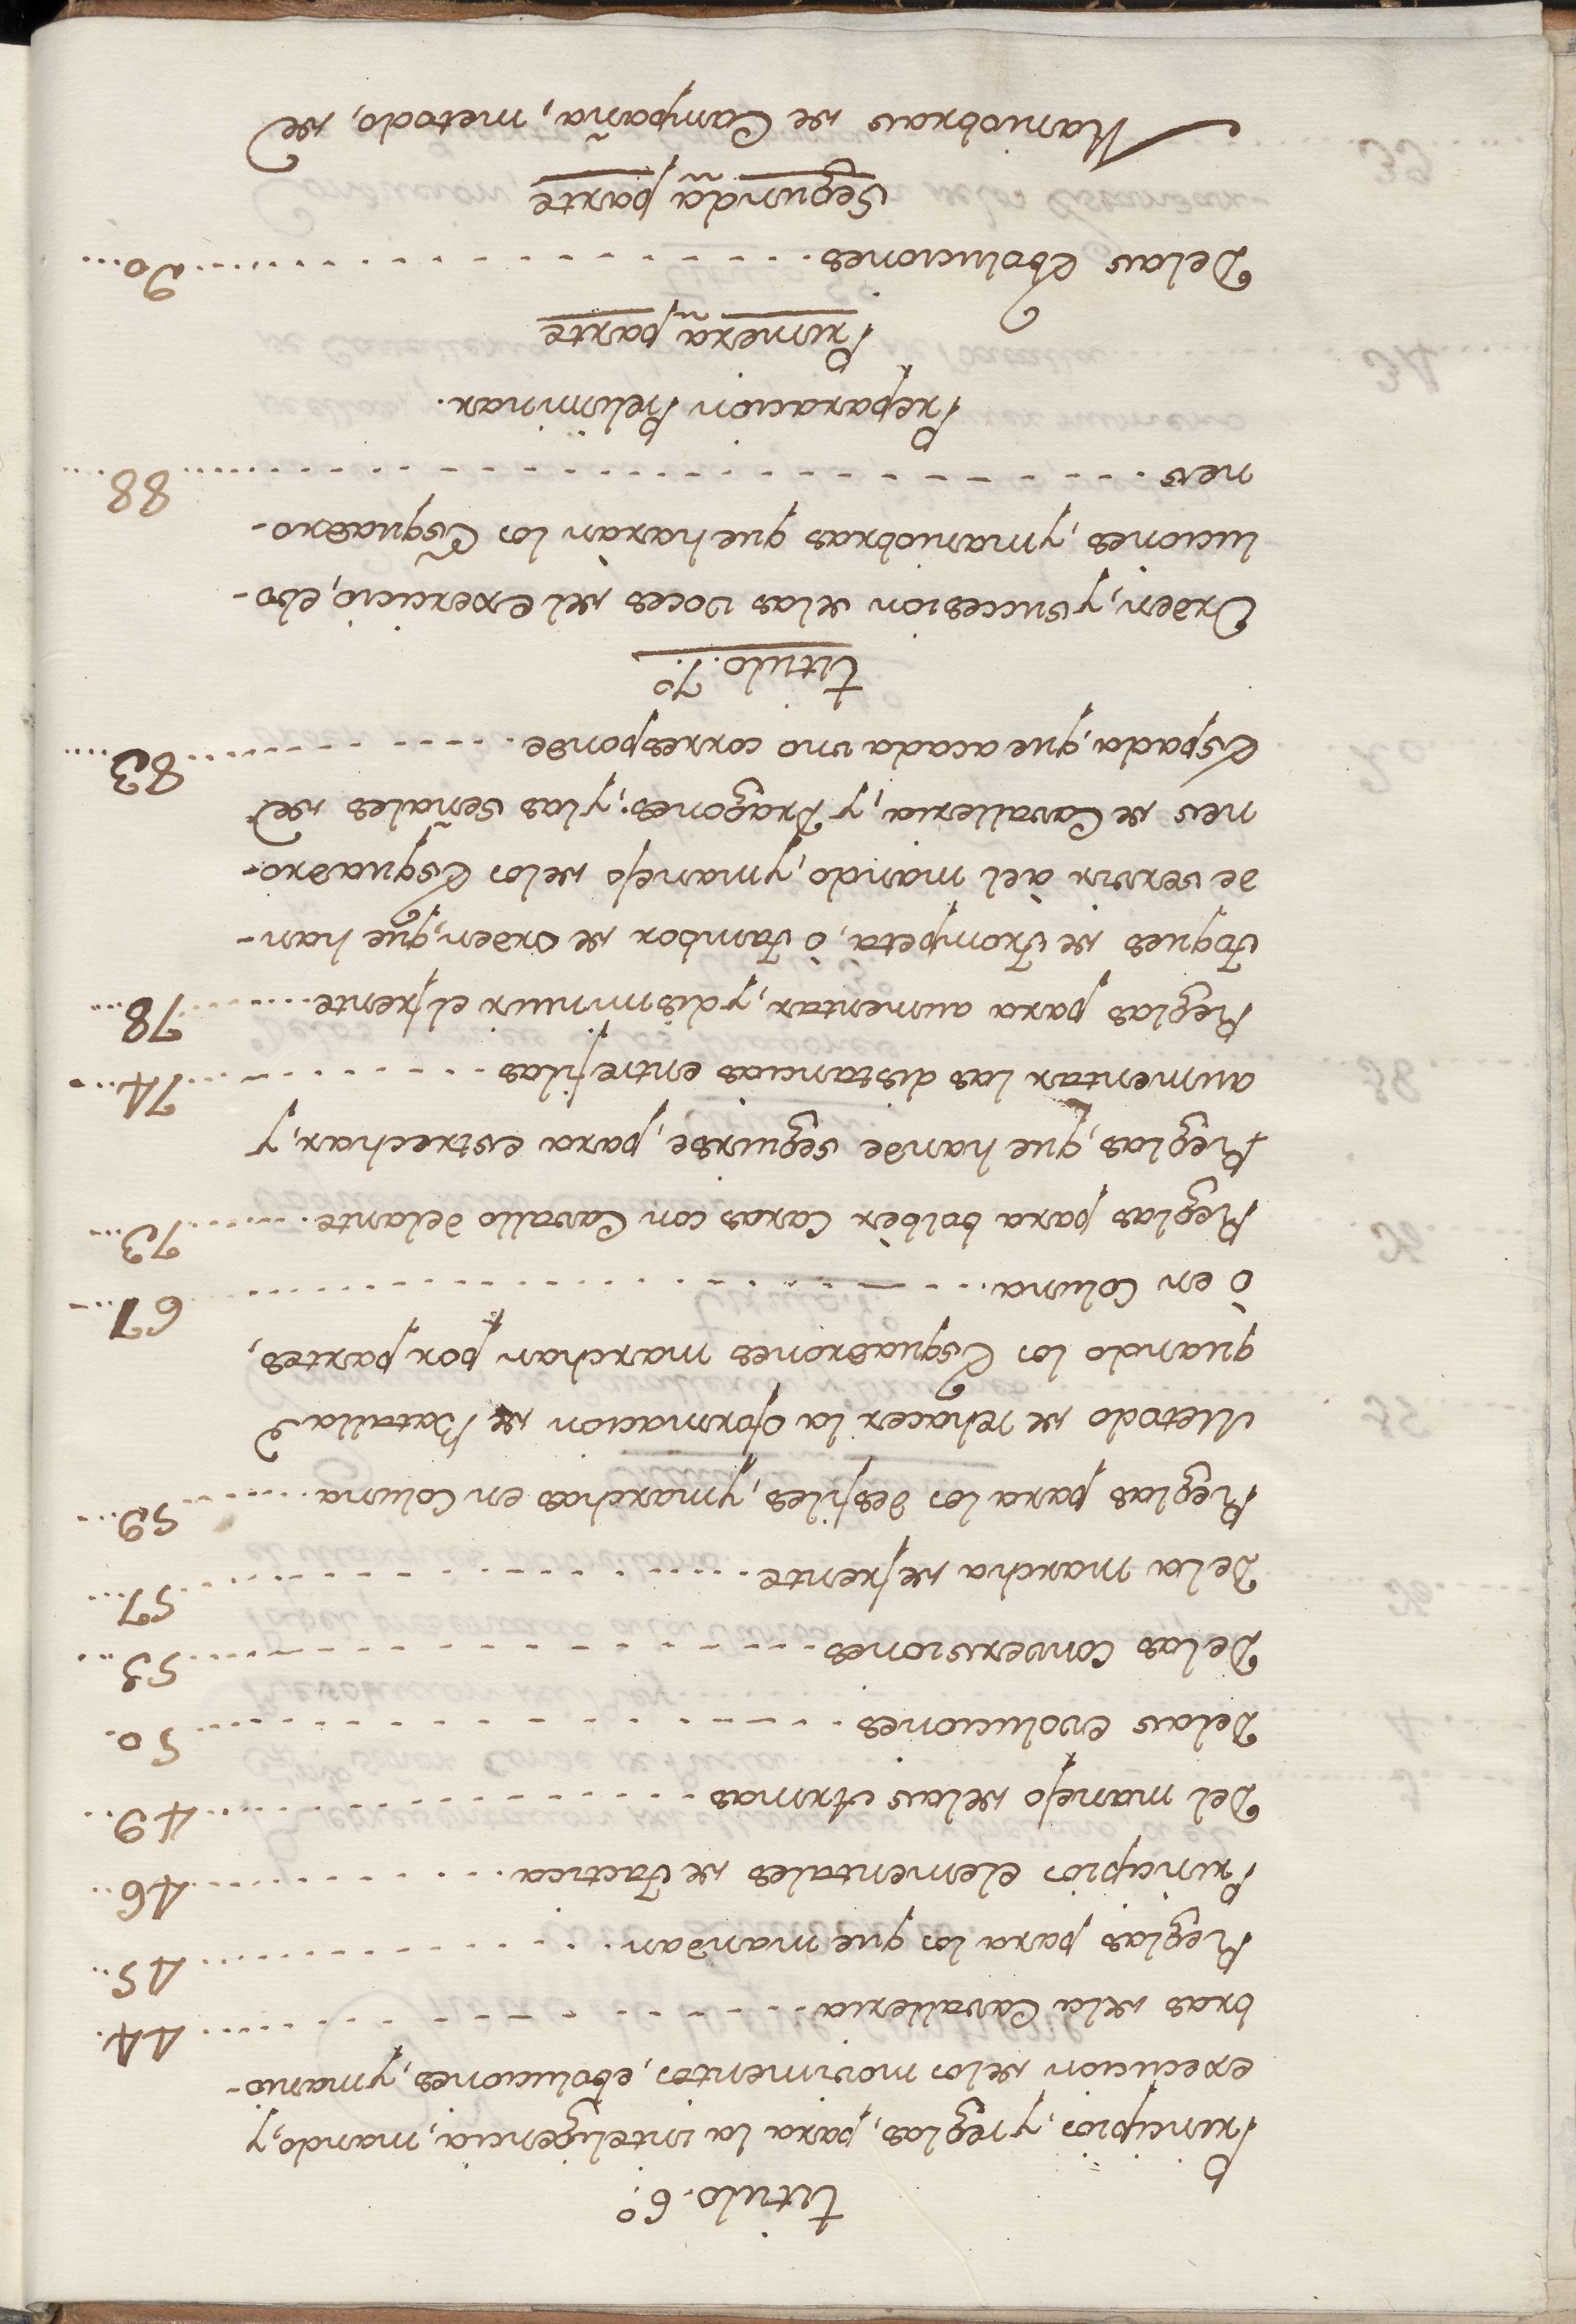 titulo. 6º
Principios, y reglas, para la inteligencia, mando, y
execucion delos movimentos, eboluciones, y manio-
bras dela Cavalleria . . . . . . . . . . 44.
Reglas para los que mandan . . . . . . . . . . 45..
Principios elementales de tactica . . . . . . . . . . 46..
Del manejo delas Armas . . . . . . . . . . 49..
Delas evoluciones . . . . . . . . . . 50.
Delas Conversiones . . . . . . . . . . 53..
Dela marcha de frente . . . . . . . . . . 57...
Reglas para los desfiles, y marchas en Coluna . . . . . 59...
Metodo de rehacer la formacion de Batalla
quando los Esquadrones marchan por partes,
ò en Coluna . . . . . . . . . . 67...
Reglas para bolbèr Caras con Cavallo delante . . . . . 73...
Reglas, que hande seguirse, para estrechar, y
aumentar las distancias entre filas . . . . . . . . . . 74...
Reglas para aumentar, y disminuir el frente . . . . . 78...
toques de trompeta, ò tambor de orden, que han-
de servir àel mando, y manejo delos Esquadro-
nes de Cavalleria, y Dragones; y las señales de
Espada, que acada uno corresponde . . . . . . . . . . 83...
titulo. 7º
Orden, y succesion delas voces del exercicio, ebo-
luciones, y maniobras que haràn los Esquadro-
nes . . . . . . . . . . 88...
Preparacion Preliminar.
Primera parte
Delas Eboluciones . . . . . . . . . . 90...
Segunda parte
Maniobras de Campaña, metodo, de